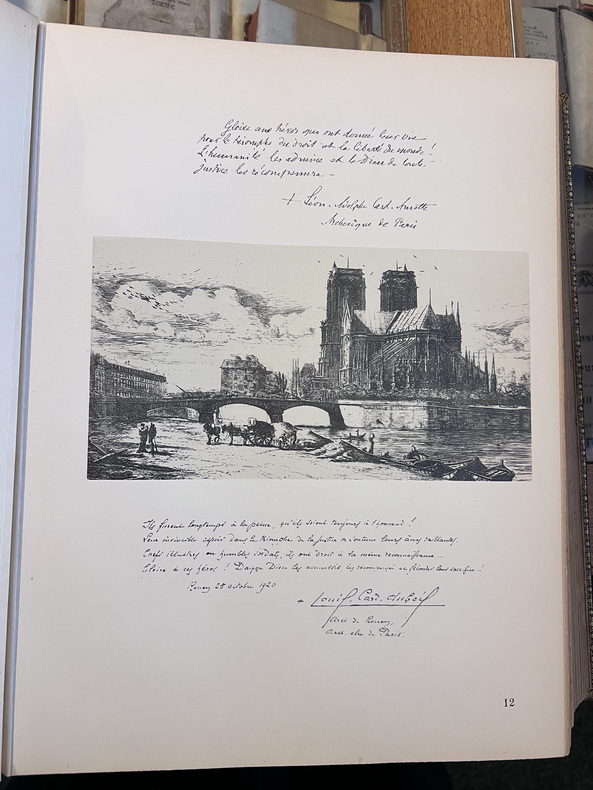 Gloire aux héros qui ont donné leur vie
pour le triomphe du droit et la liberté du monde !
L'humanité les admire et le Dieu de toute
justice les récompensera –
+ Léon-Adolphe Card. Amette
Archevêque de Paris
Ils furent longtemps à la peine, qu'ils soient toujours à l'honneur !
Leur invincible espoir dans le triomphe de la justice a soutenu leurs âmes vaillantes.
Chefs illustres ou humbles soldats, ils ont droit à la même reconnaissance.
Gloire à ces héros ! Daigne Dieu les accueillir, les récompenser et féconder leur sacrifice !
Rouen 28 octobre 1920
+ Louis, Card. Dubois
arc. de Rouen,
arch. élu de Paris.
12